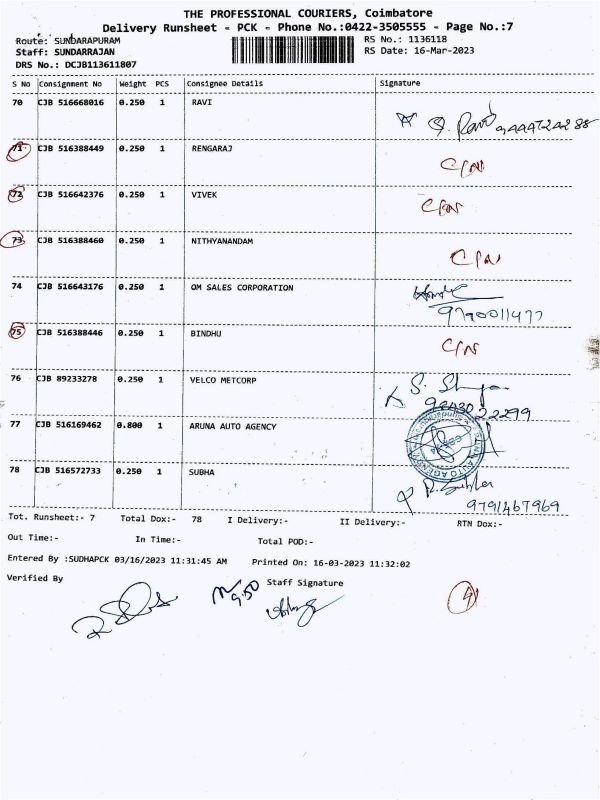 THE PROFESSIONAL COURIERS, Coimbatore
Delivery Runsheet - PCK - Phone No.:0422-3505555 - Page No.:7
Route: SUNDARAPURAM RS No.: 1136118
Staff: SUNDARRAJAN RS Date: 16-Mar-2023
DRS No.: DCJB113611807
S No Consignment No Weight PCS Consignee Details Signature
70 CJB 516668016 0.250 1 RAVI
71 CJB 516388449 0.250 1 RENGARAJ C/N
72 CJB 516642376 0.250 1 VIVEK C/N
73 CJB 516388460 0.250 1 NITHYANANDAM C/N
74 CJB 516643176 0.250 1 OM SALES CORPORATION
9790011477
75 CJB 516388446 0.250 1 BINDHU C/N
76 CJB 89233278 0.250 1 VELCO METCORP
9843022299
77 CJB 516169462 0.800 1 ARUNA AUTO AGENCY
78 CJB 516572733 0.250 1 SUBHA
9791467969
Tot. Runsheet:- 7 Total Dox:- 78 I Delivery:- II Delivery:- RTN Dox:-
Out Time:- In Time:- Total POD:-
Entered By :SUDHAPCK 03/16/2023 11:31:45 AM Printed On: 16-03-2023 11:32:02
Verified By Staff Signature
9.50
4